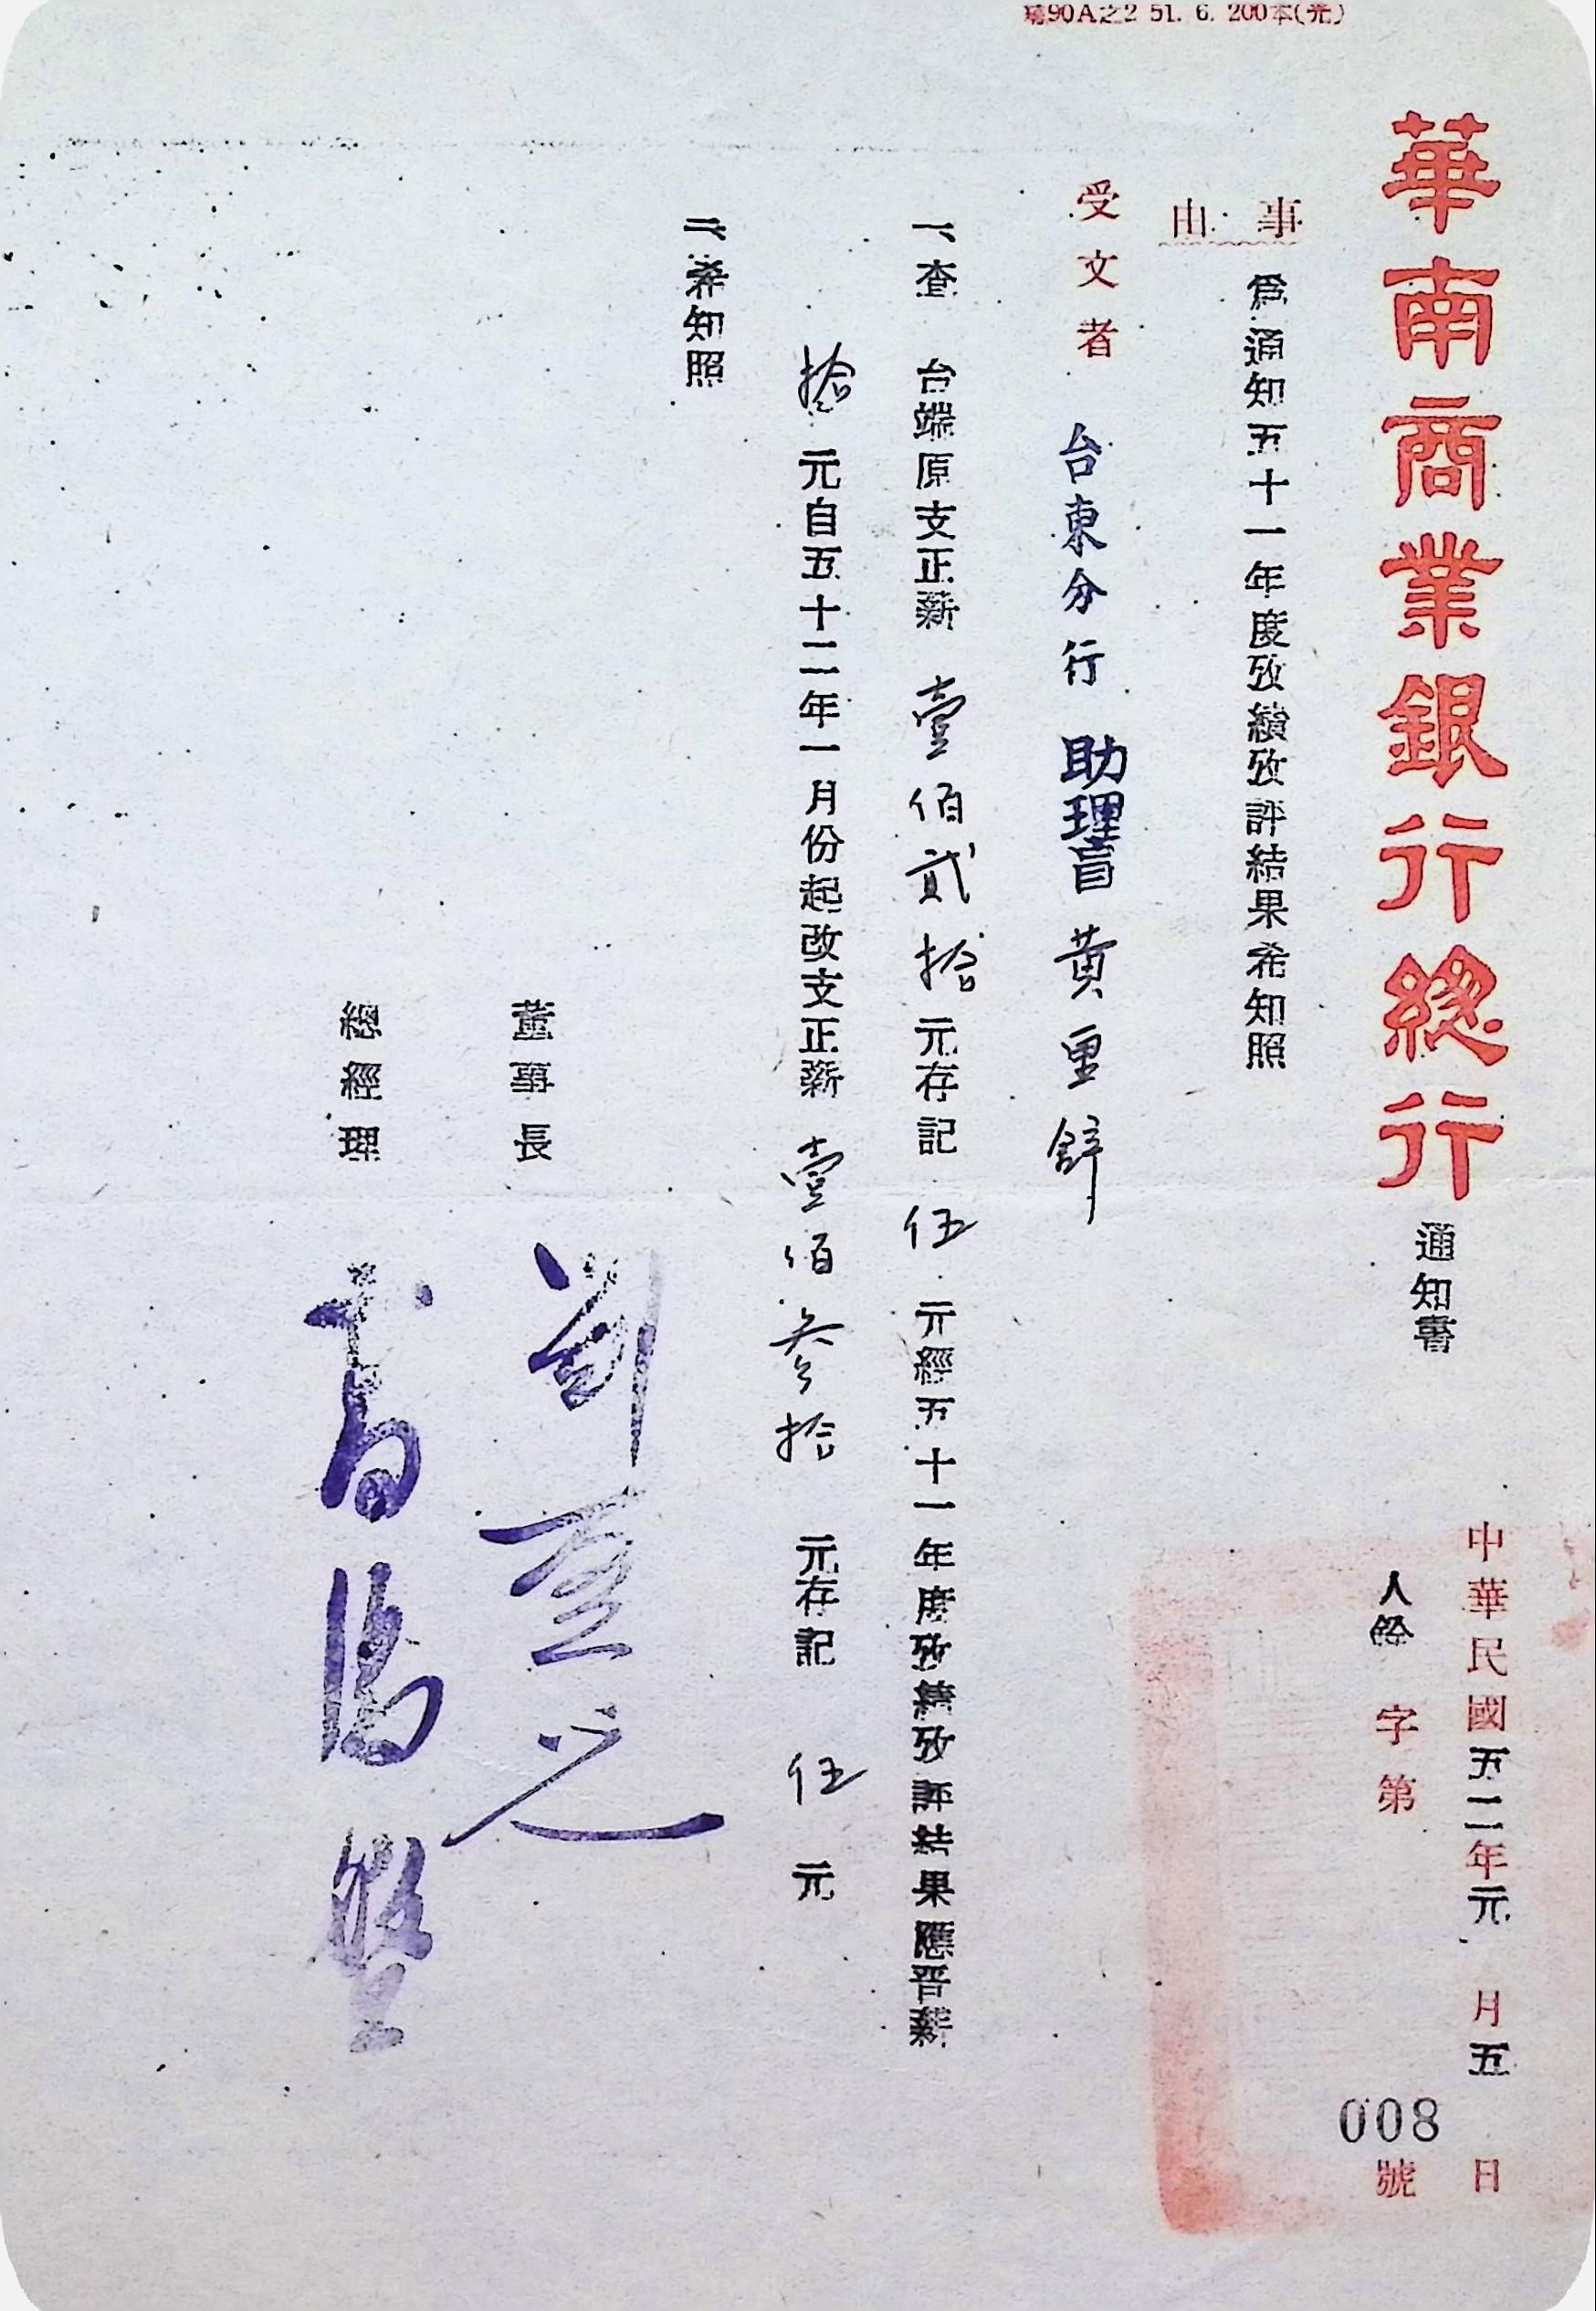 華南商業銀行總行 通知書
中華民國五二年元月五日
人 字第008號
事由 為通知五十一年度攷績攷評結果希知照
受文者 台東分行 助理員 黃重
一、查 台端原支正薪 壹佰貳拾 元存記 伍 元經五十一年度攷績攷評結果應晋薪
拾 元自五十二年一月份起改支正薪 壹佰叁拾 元存記 伍 元
二、希知照
董事長 劉啓光
總經理 高湯盤
90A之2 51. 6. 200本(光)